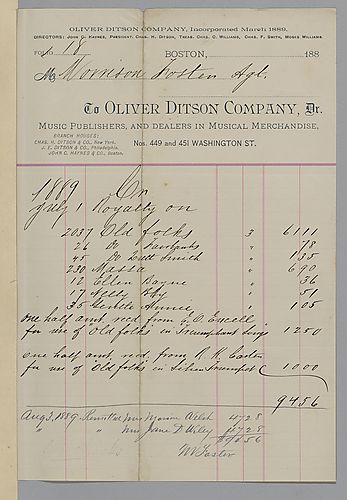 OLIVER DITSON COMPANY, Incorporated March 1889.
DIRECTORS: JOHN C. HAYNES, PRESIDENT, CHAS. H. DITSON, TREAS. CHAS. C. WILLIAMS, CHAS. F. SMITH, MOSES WILLIAMS
FOLIO 18 BOSTON, 188
M Morrison Foster Agt.
To OLIVER DITSON COMPANY, Dr.
MUSIC PUBLISHERS, AND DEALERS IN MUSICAL MERCHANDISE,
BRANCH HOUSES:
CHAS. H. DITSON & CO., New York.
J. E. DITSON & CO., Philadelphia.
JOHN C. HAYNES & CO., Boston.
Nos. 449 and 451 WASHINGTON ST.
1889 Cr
July 1 Royalty on
2037 Old folks 3 6111
26 Do " 78
45 Do " 135
230 Massa " 690
12 Ellen Bayne " 36
17 Nelly " 51
35 Gentle Annie " 105
one half amt recd from E. O. Excell
for use of Old folks in Triumphant Songs 1250
one half amt. recd. from R. K. Carter
for use of Old folks in 1000
9456
Aug 3. 1889 Remitted Mrs Marion Welsh 4728
" " Mrs Jane D Wiley 4728
$9456
M Foster